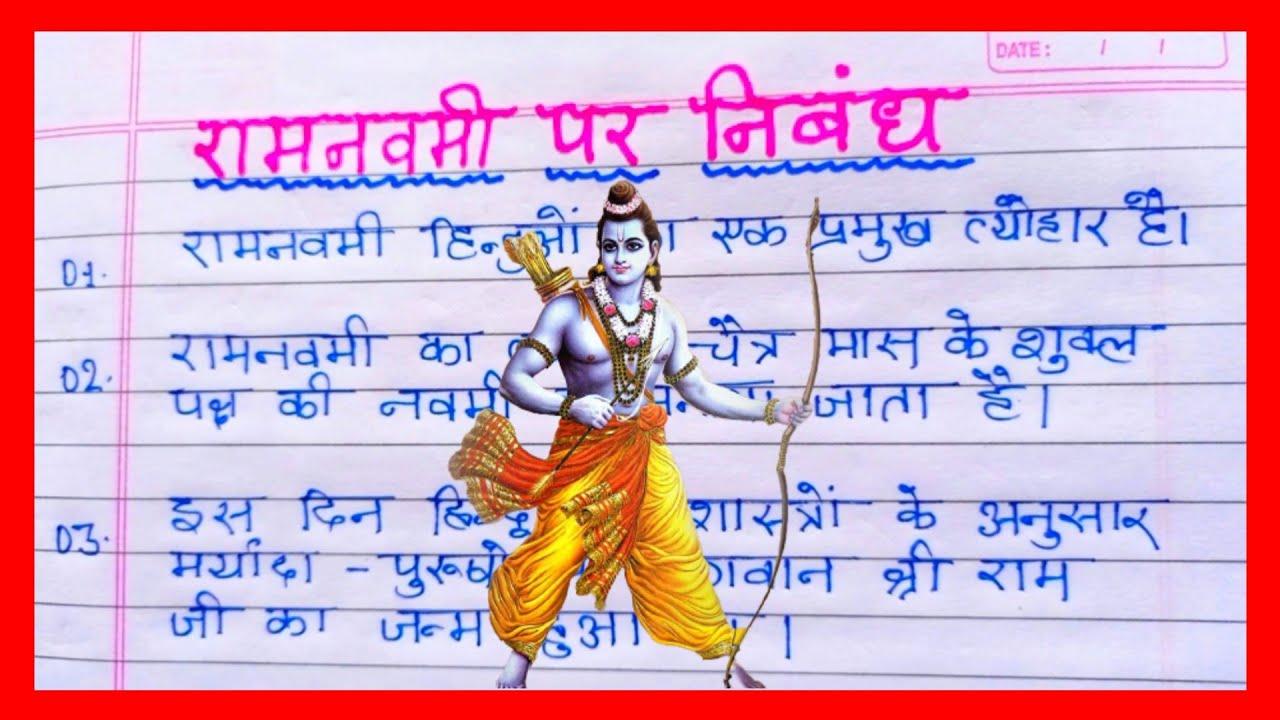 DATE: / /
रामनवमी पर निबंध
01. रामनवमी हिन्दुओं एक प्रमुख त्यौहार है।
02. रामनवमी का चैत्र मास के शुक्ल
पक्ष की नवमी जाता है।
03. इस दिन शास्त्रों के अनुसार
मर्यादा - श्री राम
जी का जन्म हुआ ।